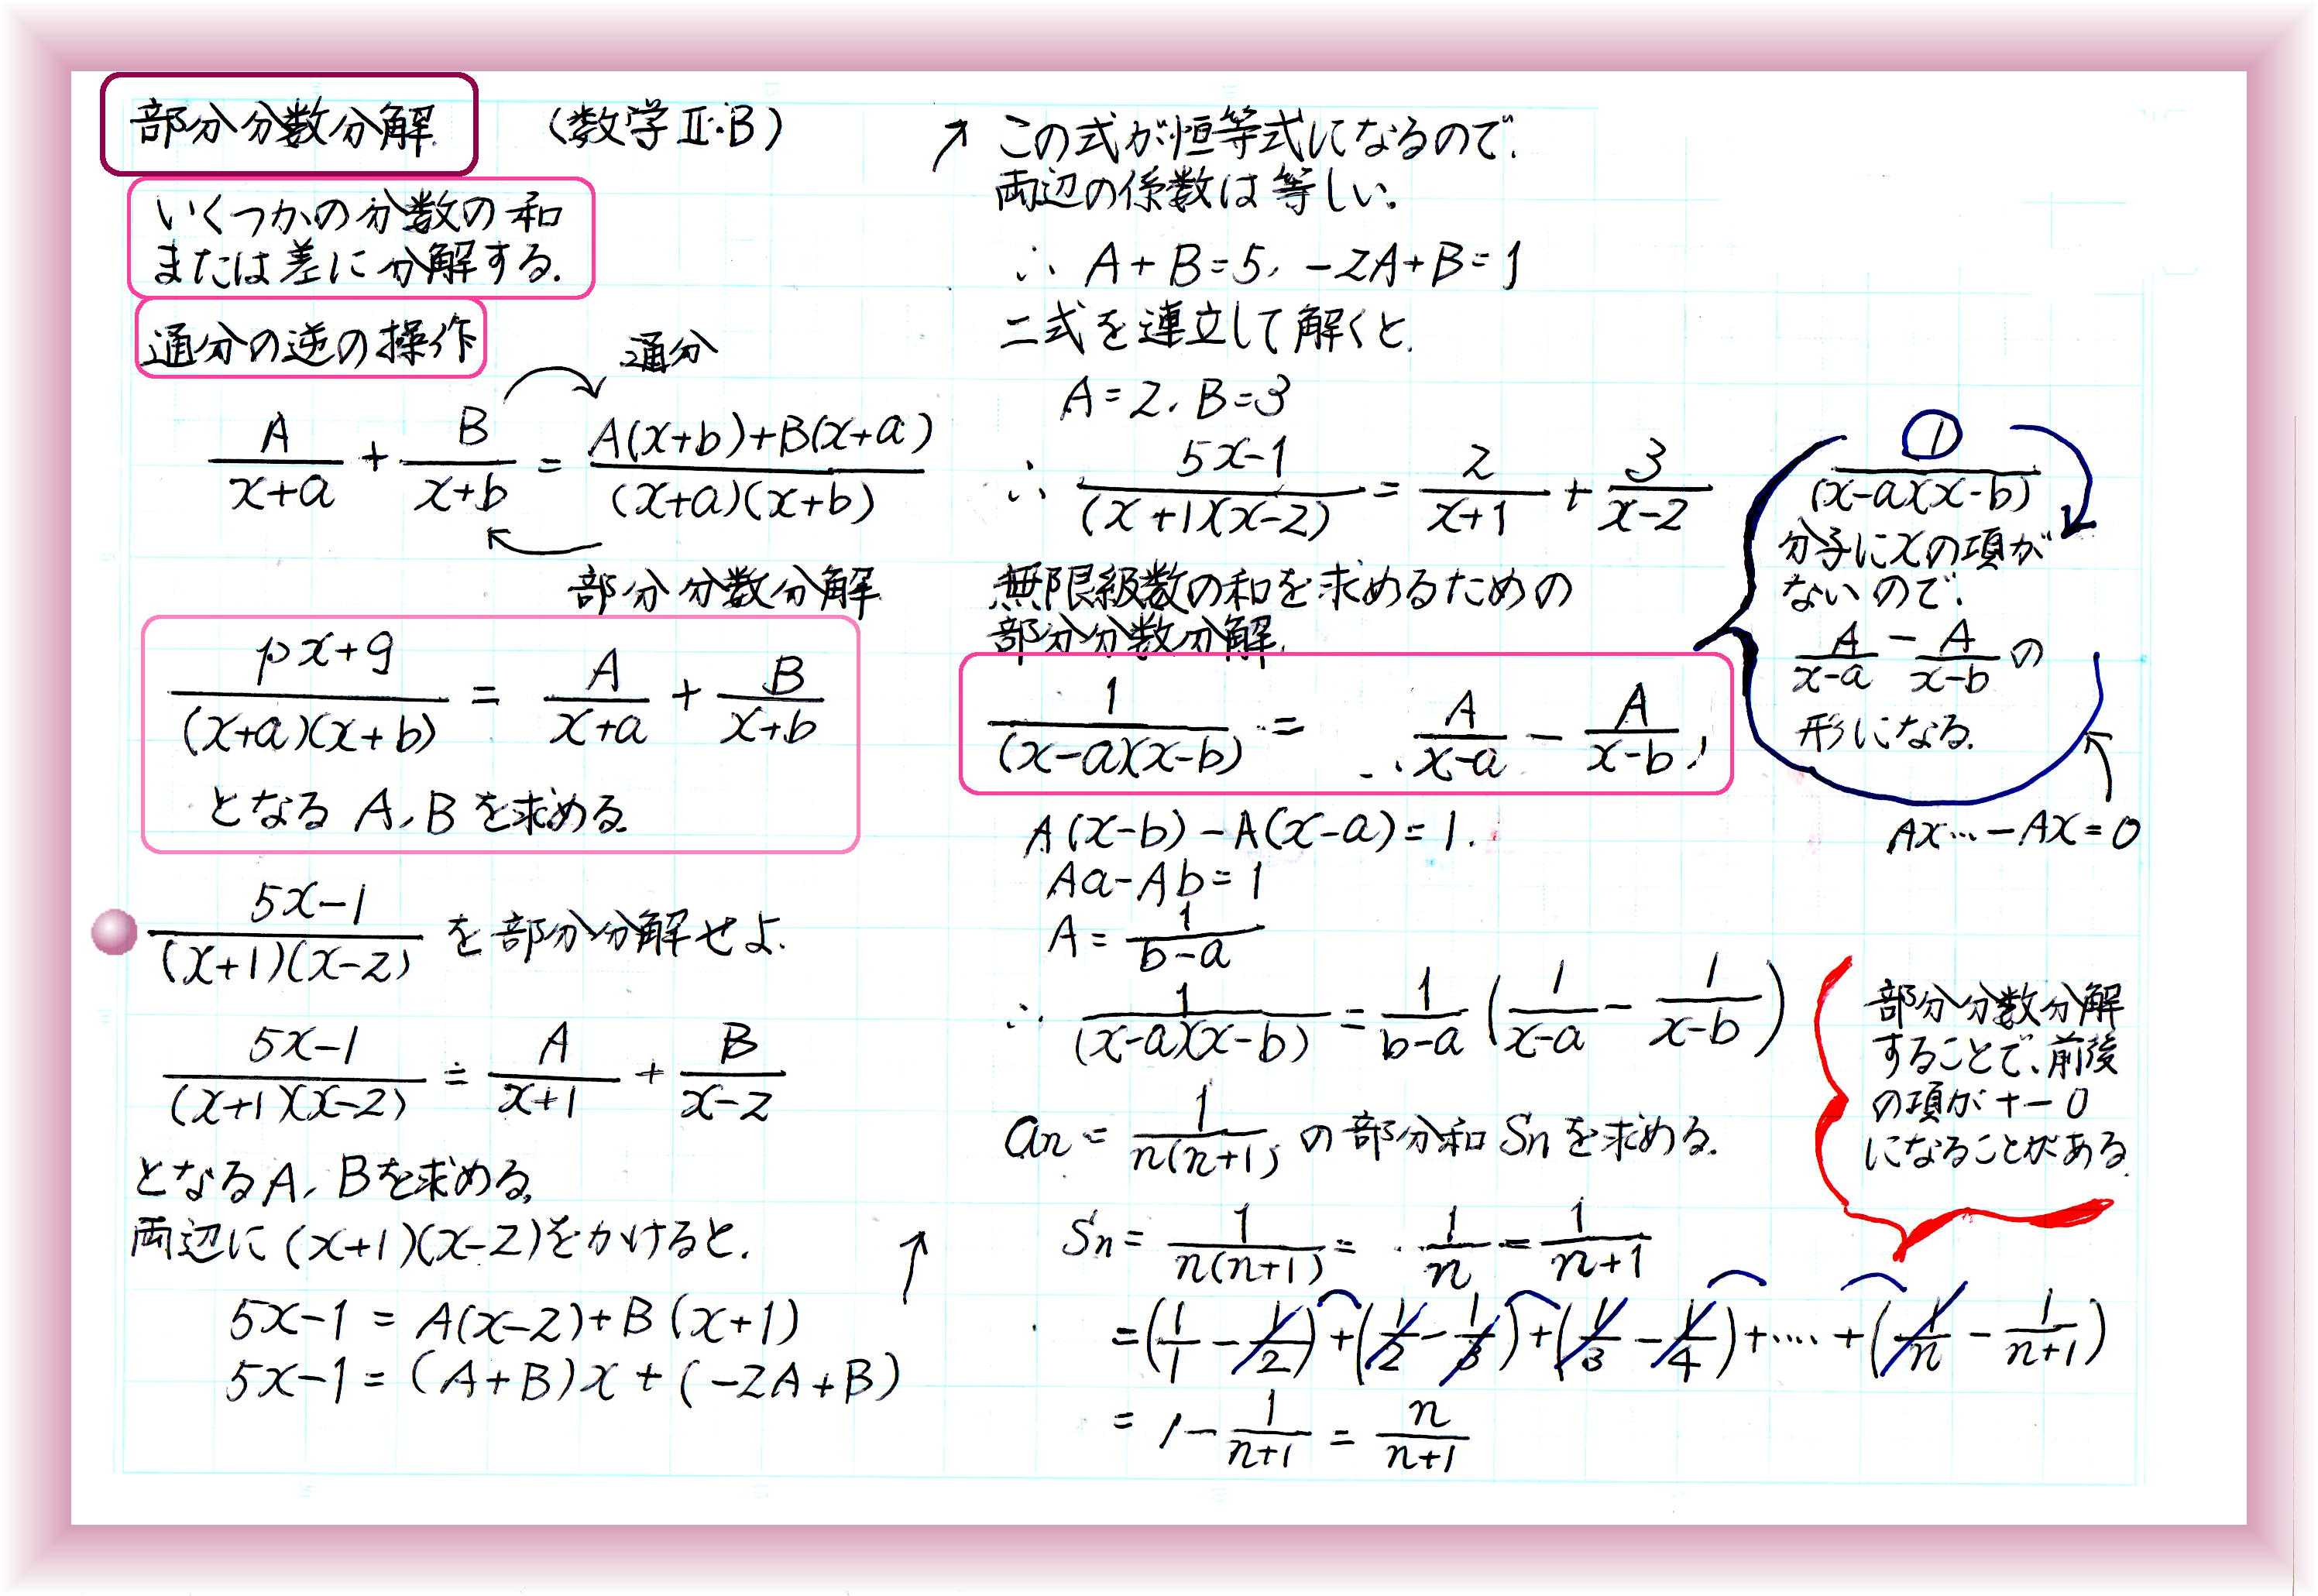 部分分数分解 (数学Ⅱ·B)
いくつかの分数の和
または差に分解する.
通分の逆の操作
通分
A/(x+a) + B/(x+b) = (A(x+b)+B(x+a))/((x+a)(x+b))
部分分数分解
(px+q)/((x+a)(x+b)) = A/(x+a) + B/(x+b)
となる A, B を求める.
(5x-1)/((x+1)(x-2)) を部分分解せよ.
(5x-1)/((x+1)(x-2)) = A/(x+1) + B/(x-2)
となるA, Bを求める.
両辺に (x+1)(x-2)をかけると.
5x-1 = A(x-2)+B(x+1)
5x-1 = (A+B)x+(-2A+B)
↗ この式が恒等式になるので.
両辺の係数は等しい.
∴ A+B=5, -2A+B=1
二式を連立して解くと.
A=2, B=3
∴ (5x-1)/((x+1)(x-2)) = 2/(x+1) + 3/(x-2)
無限級数の和を求めるための
部分分数分解.
1/((x-a)(x-b)) = A/(x-a) - A/(x-b)
A(x-b)-A(x-a)=1.
Aa-Ab=1
A = 1/(b-a)
∴ 1/((x-a)(x-b)) = 1/(b-a) (1/(x-a) - 1/(x-b))
an = 1/(n(n+1)) の部分和 Sn を求める.
Sn = 1/(n(n+1)) = 1/n - 1/(n+1)
=(1/1 - 1/2)+(1/2 - 1/3)+(1/3 - 1/4)+····+(1/n - 1/(n+1))
= 1 - 1/(n+1) = n/(n+1)
①/((x-a)(x-b))
分子にxの項が
ないので.
A/(x-a) - A/(x-b) の
形になる.
Ax…-Ax=0
部分分数分解
することで、前後
の項が+-0
になることがある.